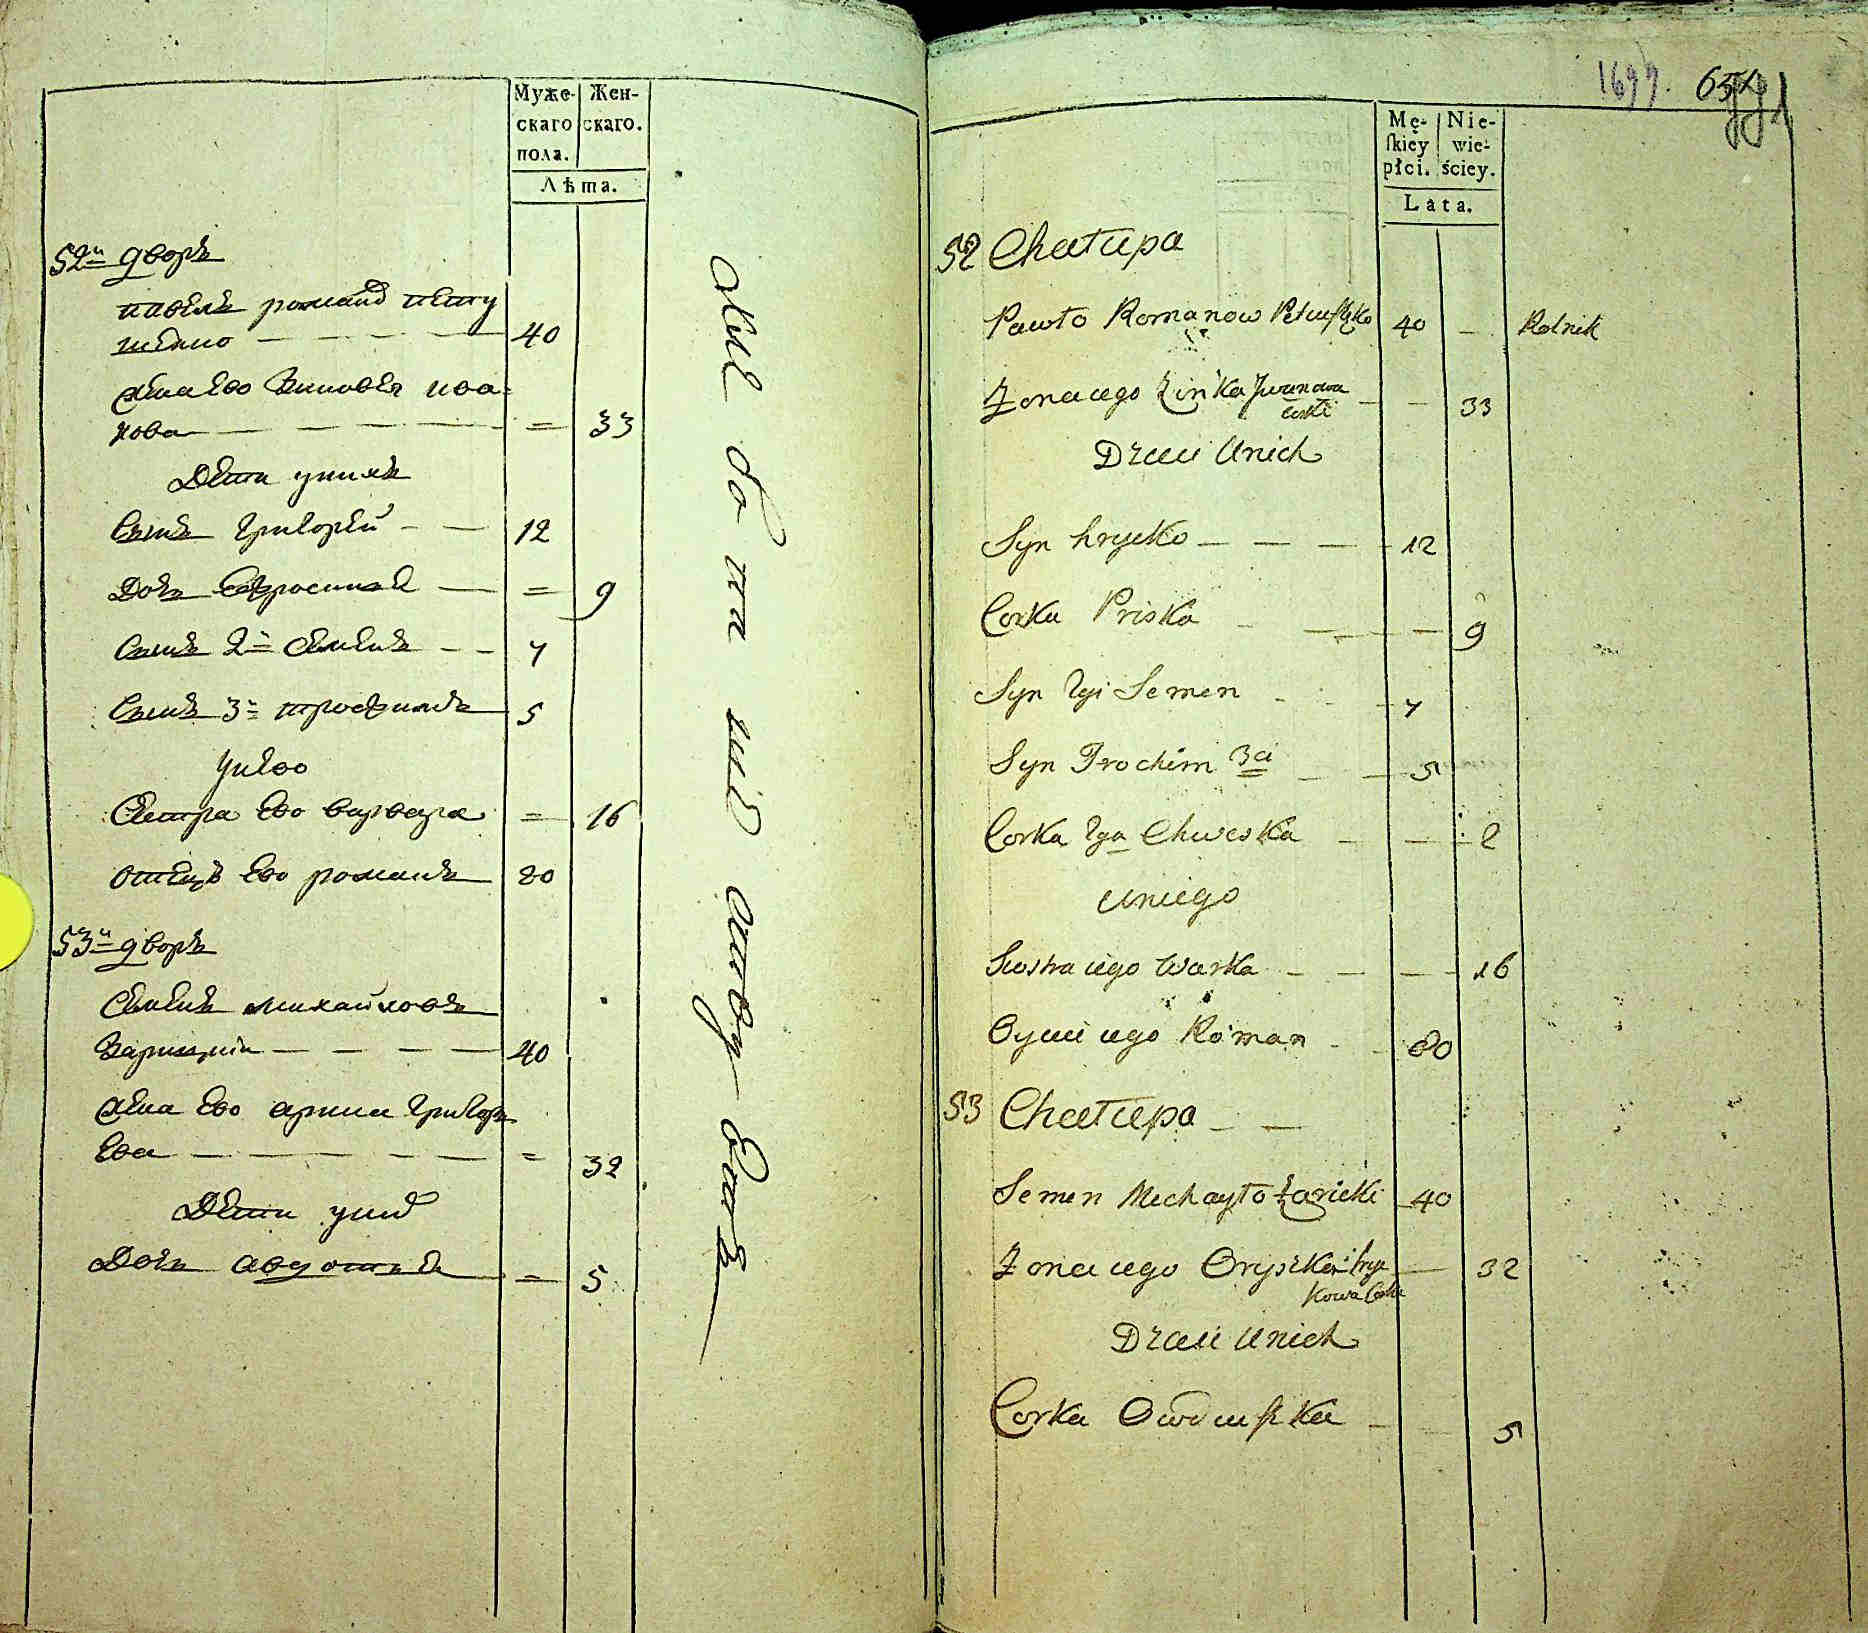 Муже-
скаго
пола.
Жен-
скаго.
Лѣта.
52й дворъ
павелъ романов петру
шенко — 40
жена ево Зиновья ива
нова — = 33
Дети унихъ
Сынъ григорей — 12
Дочь ефросинья — = 9
Сынъ 2й семенъ — 7
Сынъ 3й трофимъ 5
унево
Сестра ево варвара = 16
отецъ ево романъ 80
53й дворъ
Семенъ михайловъ
— 40
жена ево арина григорь
ева — = 32
Дети унив
Дочь авдотья = 5
1699. 651
991
Mę-
skiey
płci.
Nie-
wie-
ściey.
Lata.
52 Chałupa
Pawło Romanow 40 — Rolnik
Żona iego Żinka Jwanowa
Corka — 33
Dzieci Unich
Syn hrycko — 12
Corka Priska — 9
Syn 2gi Semen — 7
Syn Trochim 3ci — 5
Corka 2ga Chweska — 2
Uniego
Siostra iego Warka — 16
Oyciec iego Roman — 80
53 Chałupa
Semen Mechayło Łaricki 40
Żona iego Oryszka hry
kowa Corka — 32
Dzieci Unich
Corka Owduszka — 5